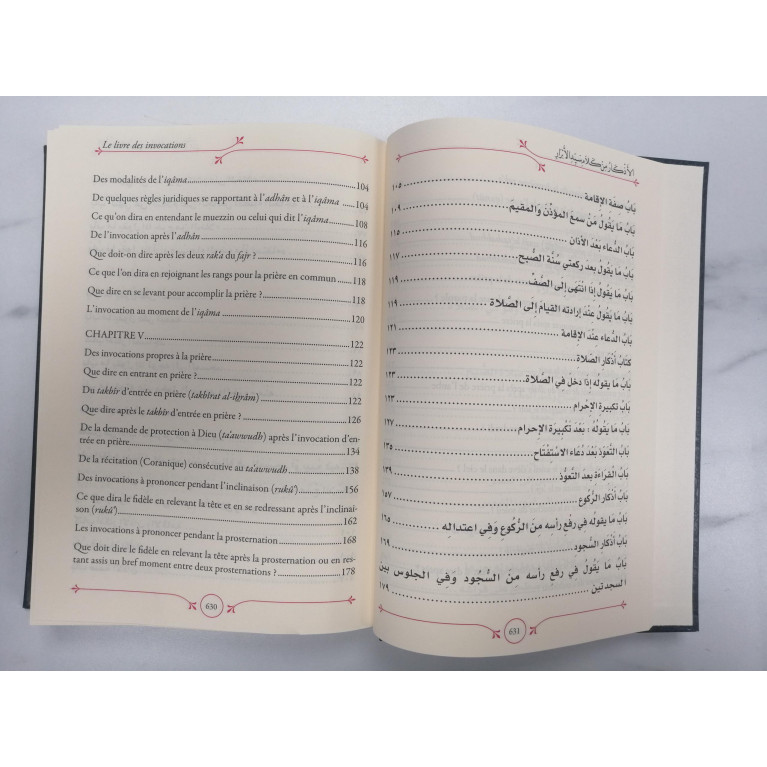 Le livre des invocations
Des modalités de l'iqâma ........ 104
De quelques règles juridiques se rapportant à l'adhân et à l'iqâma ........ 104
Ce qu'on dira en entendant le muezzin ou celui qui dit l'iqâma ........ 108
De l'invocation après l'adhân ........ 116
Que doit-on dire après les deux rak'a du fajr ? ........ 116
Ce que l'on dira en rejoignant les rangs pour la prière en commun ........ 118
Que dire en se levant pour accomplir la prière ? ........ 118
L'invocation au moment de l'iqâma ........ 120
CHAPITRE V ........ 122
Des invocations propres à la prière ........ 122
Que dire en entrant en prière ? ........ 122
Du takbîr d'entrée en prière (takbîrat al-iḥrâm) ........ 122
Que dire après le takbîr d'entrée en prière ? ........ 126
De la demande de protection à Dieu (ta'awwudh) après l'invocation d'en-
trée en prière ........ 134
De la récitation (Coranique) consécutive au ta'awwudh ........ 138
Des invocations à prononcer pendant l'inclinaison (rukû') ........ 156
Ce que dira le fidèle en relevant la tête et en se redressant après l'inclinai-
son (rukû') ........ 162
Les invocations à prononcer pendant la prosternation ........ 168
Que doit dire le fidèle en relevant la tête après la prosternation ou en res-
tant assis un bref moment entre deux prosternations ? ........ 178
630
الأذكار من كلام سيد الأبرار
بَابُ صفة الإقامة ........ ١٠٥
بَابُ مَا يَقُولُ مَنْ سمعَ المؤذّنَ وَالمقيمَ ........ ١٠٩
بَابُ الدُّعاء بَعْدَ الأذان ........ ١١٥
بَابُ مَا يقولُ بعد ركعتي سُنَّة الصُّبح ........ ١١٧
بَابُ مَا يَقُولُ إذَا انْتَهَى إلى الصَّفّ ........ ١١٩
بَابُ مَا يَقُولُ عندَ إرادته القيامَ إلى الصَّلاة ........ ١١٩
بَابُ الدُّعاء عنْدَ الإقَامة ........ ١٢١
كتابُ أذكار الصَّلاة ........ ١٢٣
بَابُ مَا يقولُه إذا دخلَ في الصَّلاة ........ ١٢٣
بَابُ تكبيرة الإحْرام ........ ١٢٣
بَابُ مَا يقُولُه: بَعْدَ تكبيرَة الإحرام ........ ١٢٧
بَابُ التعوّذ بَعْدَ دُعَاء الاسْتفْتاح ........ ١٣٥
بَابُ القراءَة بعد التَّعوُّذ ........ ١٣٩
بَابُ أذكار الرُّكوع ........ ١٥٧
بَابُ مَا يقوله في رفع رأسه منَ الرُّكُوع وَفي اعتداله ........ ١٦٥
بَابُ أذكار السُّجود ........ ١٦٩
بَابُ مَا يَقُولُ في رفع رأسه منَ السُّجُود وَفي الجلوس بين
السجدتين ........ ١٧٩
631